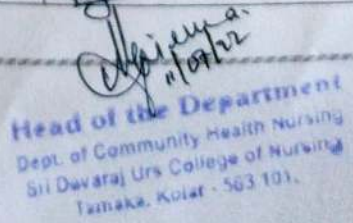 11/07/22
Head of the Department
Dept. of Community Health Nursing
Sri Devaraj Urs College of Nursing
Tamaka, Kolar - 563 101.